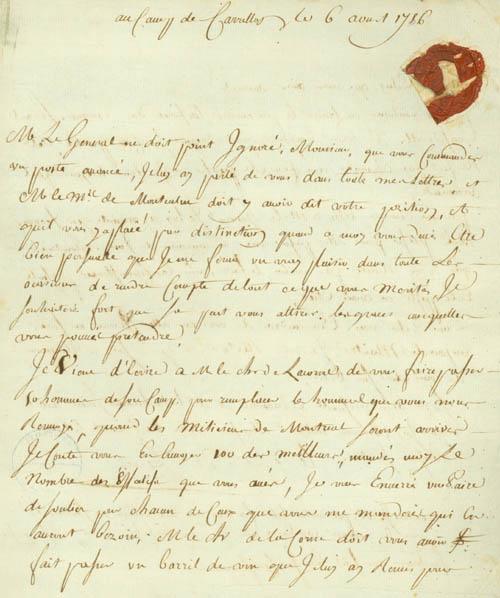 au Camp de Carrillon le 6 aoust 1756
Mr Le General ne doit point Ignoré, Monsieur, que vous Commandez
un poste avancé, Je luy ay parlé de vous dans toute mes Lettres, et
Mr le Mis de Montcalm doit y avoir dit votre position, et
qu'il vous y a placé par distinction quand a moy vous devez être
bien persuadé que Je me ferai un vray plaisir dans toute Les
occasions de rendre Compte de tout ce que vous Merités, Je
souhaitte fort que Je puisse vous attirer les graces auxquelles
vous pouvez pretendre.
Je Viens d'écrire a Mr le chr de La corne de vous faire passer
50 hommes de son Camp pour remplacer les hommes que vous nous
Renvoyez, quand les Miliciens de Montreal seront arrivés
Je Conte vous En Envoyer 100 des meilleurs, mandez moy Le
Nombre des que vous avez, Je vous Enverrai une paire
de soulier pour chacun de Ceux que vous me manderez qui En
auront bezoin. Mr le chr de la Corne doit vous avoir
fait passer un barril de vin que Je luy ay Remis pour